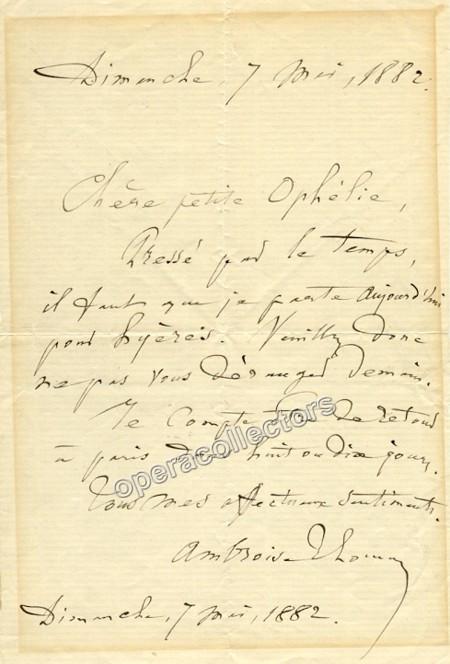 Dimanche, 7 Mai, 1882.
Chère petite Ophélie,
Pressé par le temps,
il faut que je parte aujourd'hui
pour Hyères. Veuillez donc
ne pas vous déranger demain.
Je compte être de retour
à Paris dans huit ou dix jours.
operacollectors
Tous mes affectueux sentiments.
Ambroise Thomas
Dimanche, 7 Mai, 1882.